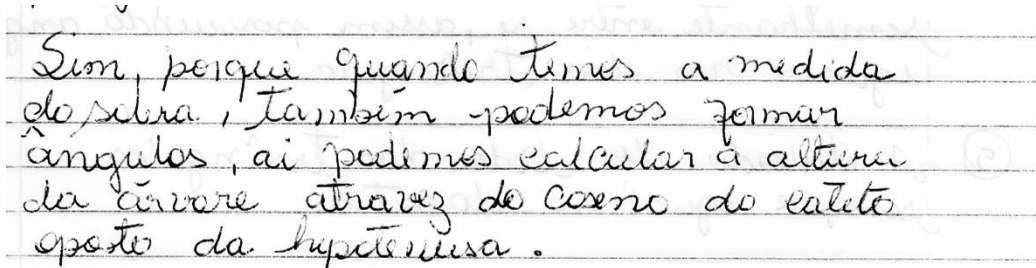 Sim, porque quando temos a medida
da sobra, também podemos formar
ângulos, ai podemos calcular a altura
da árvore atravez do coseno do cateto
oposto da hipotenusa.